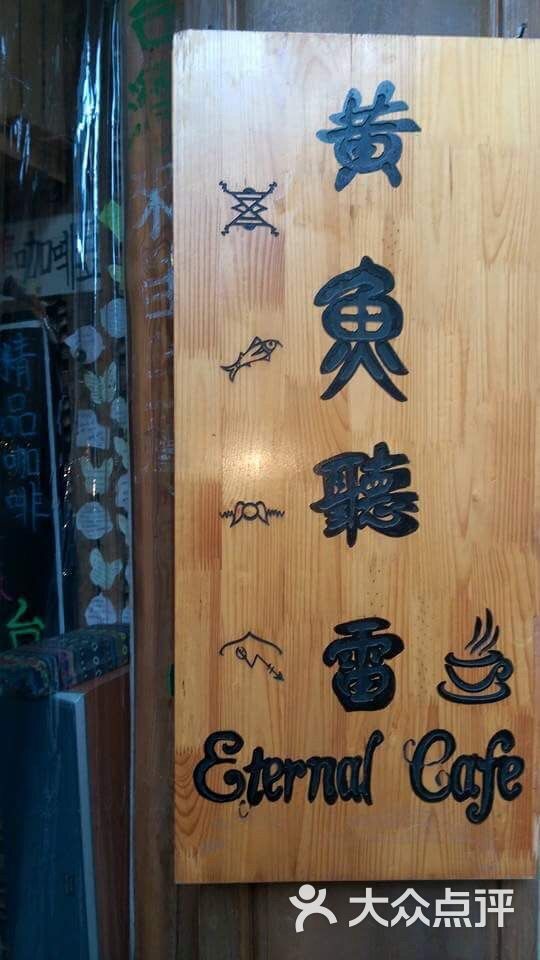 黄魚聽雷
Eternal Cafe
咖啡
精品咖啡
台灣
台
大众点评